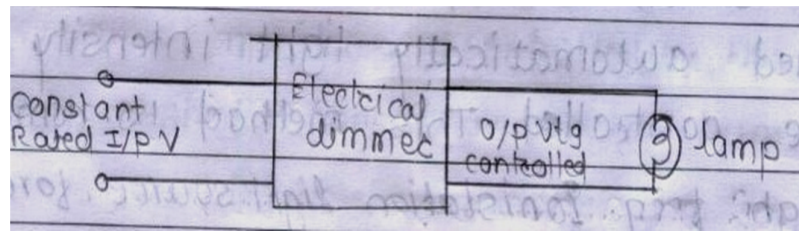 Constant
Rated I/P V
Electrical
dimmer
O/P Vtg
controlled
lamp